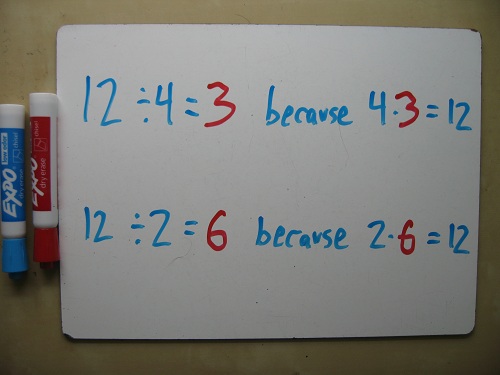 12 ÷ 4 = 3 because 4 · 3 = 12
12 ÷ 2 = 6 because 2 · 6 = 12
EXPO
dry erase
EXPO
dry erase